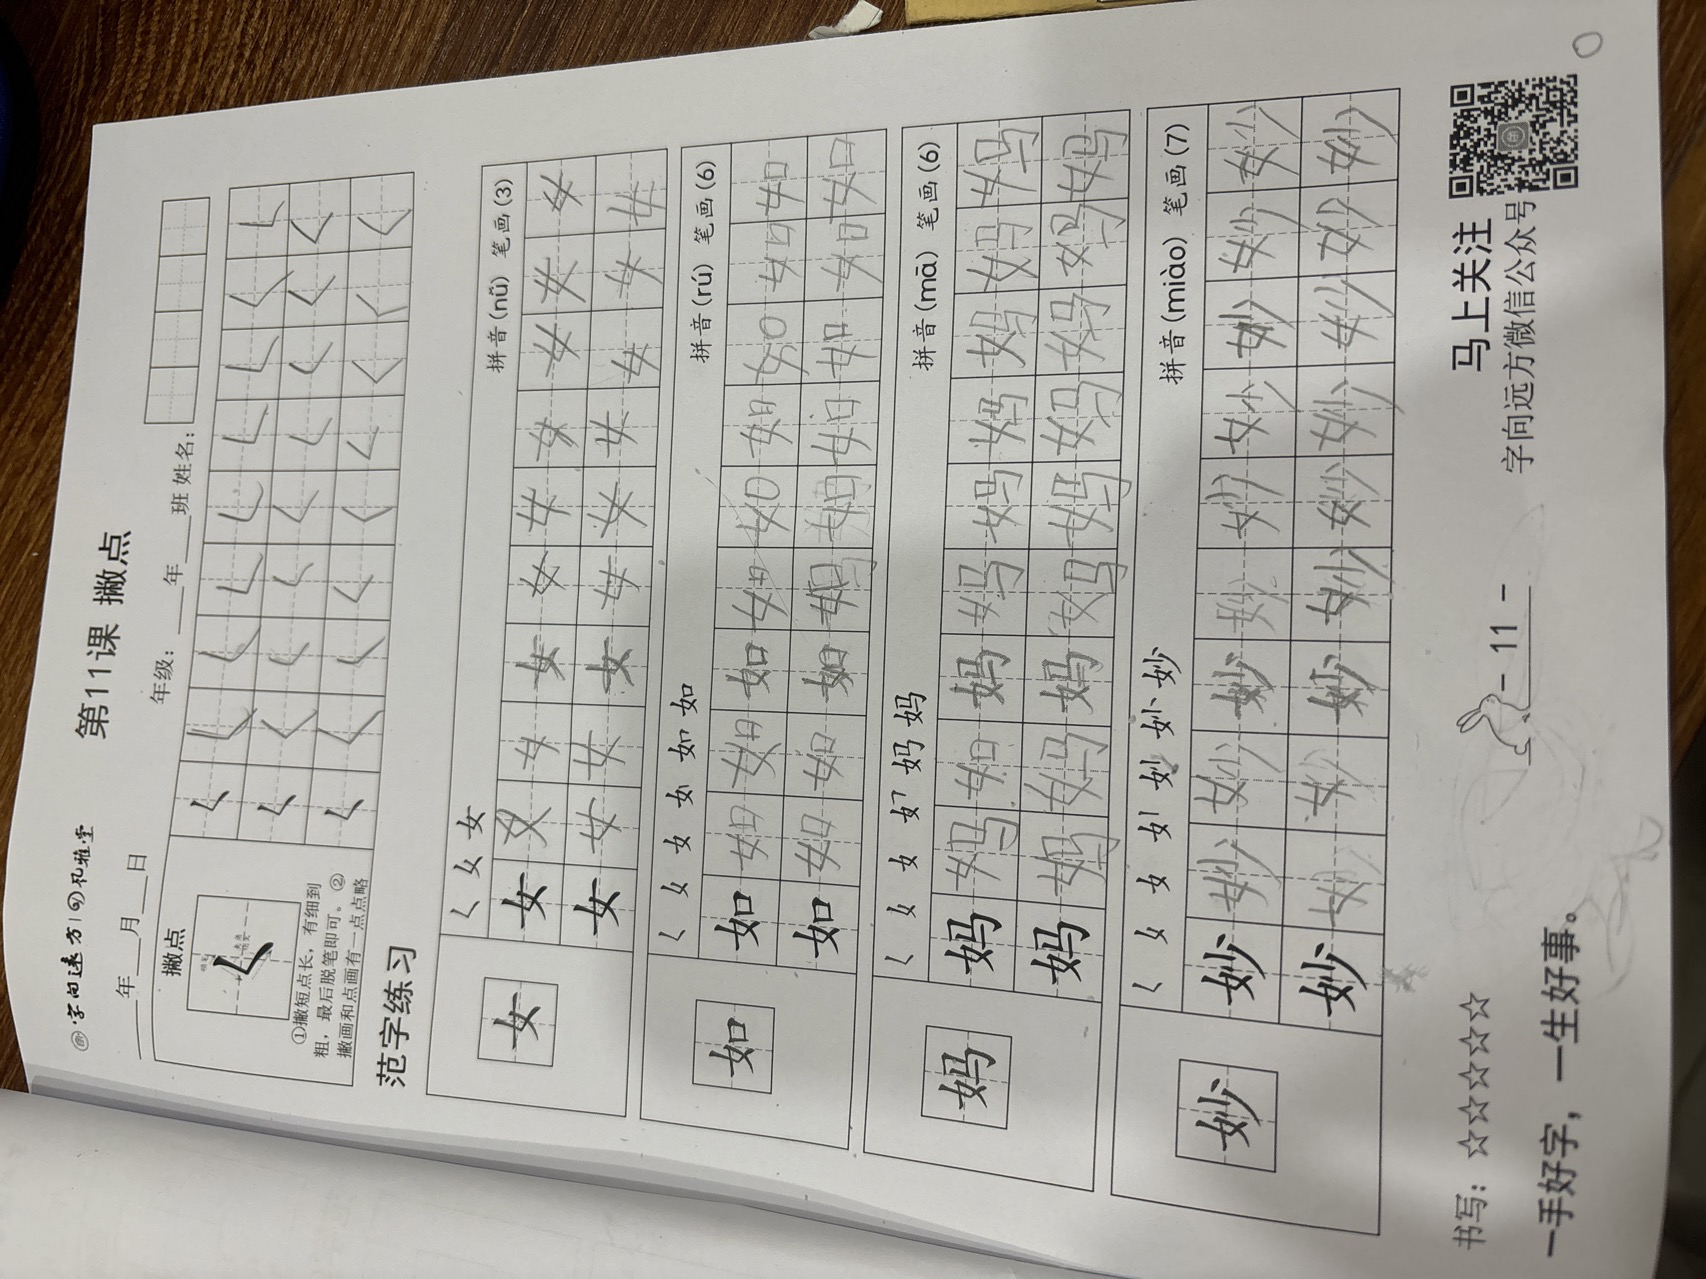 字向远方|礼雅堂
第11课 撇点
年 月 日
年级： 年 班 姓名：
撇点
①撇短点长，有细到
粗，最后脱笔即可。②
撇画和点画有一点点略
范字练习
女
拼音(nǚ) 笔画(3)
女 女 女 女 女 女 女 女 女 女
女 女 女 女 女 女 女 女 女 女
如
拼音(rú) 笔画(6)
如 如 如 如
如 如 如 如
妈
拼音(mā) 笔画(6)
妈 妈 如 妈 妈 妈 妈 妈 妈 妈
妈 妈 妈 妈 妈 妈 妈 妈 妈 妈
妙
拼音(miào) 笔画(7)
妙 妙 妙 妙 妙 妙 妙 妙 妙 妙
妙 妙 妙 妙 妙 妙 妙 妙 妙 妙
书写：☆☆☆☆☆☆
一手好字，一生好事。
- 11 -
马上关注
字向远方微信公众号